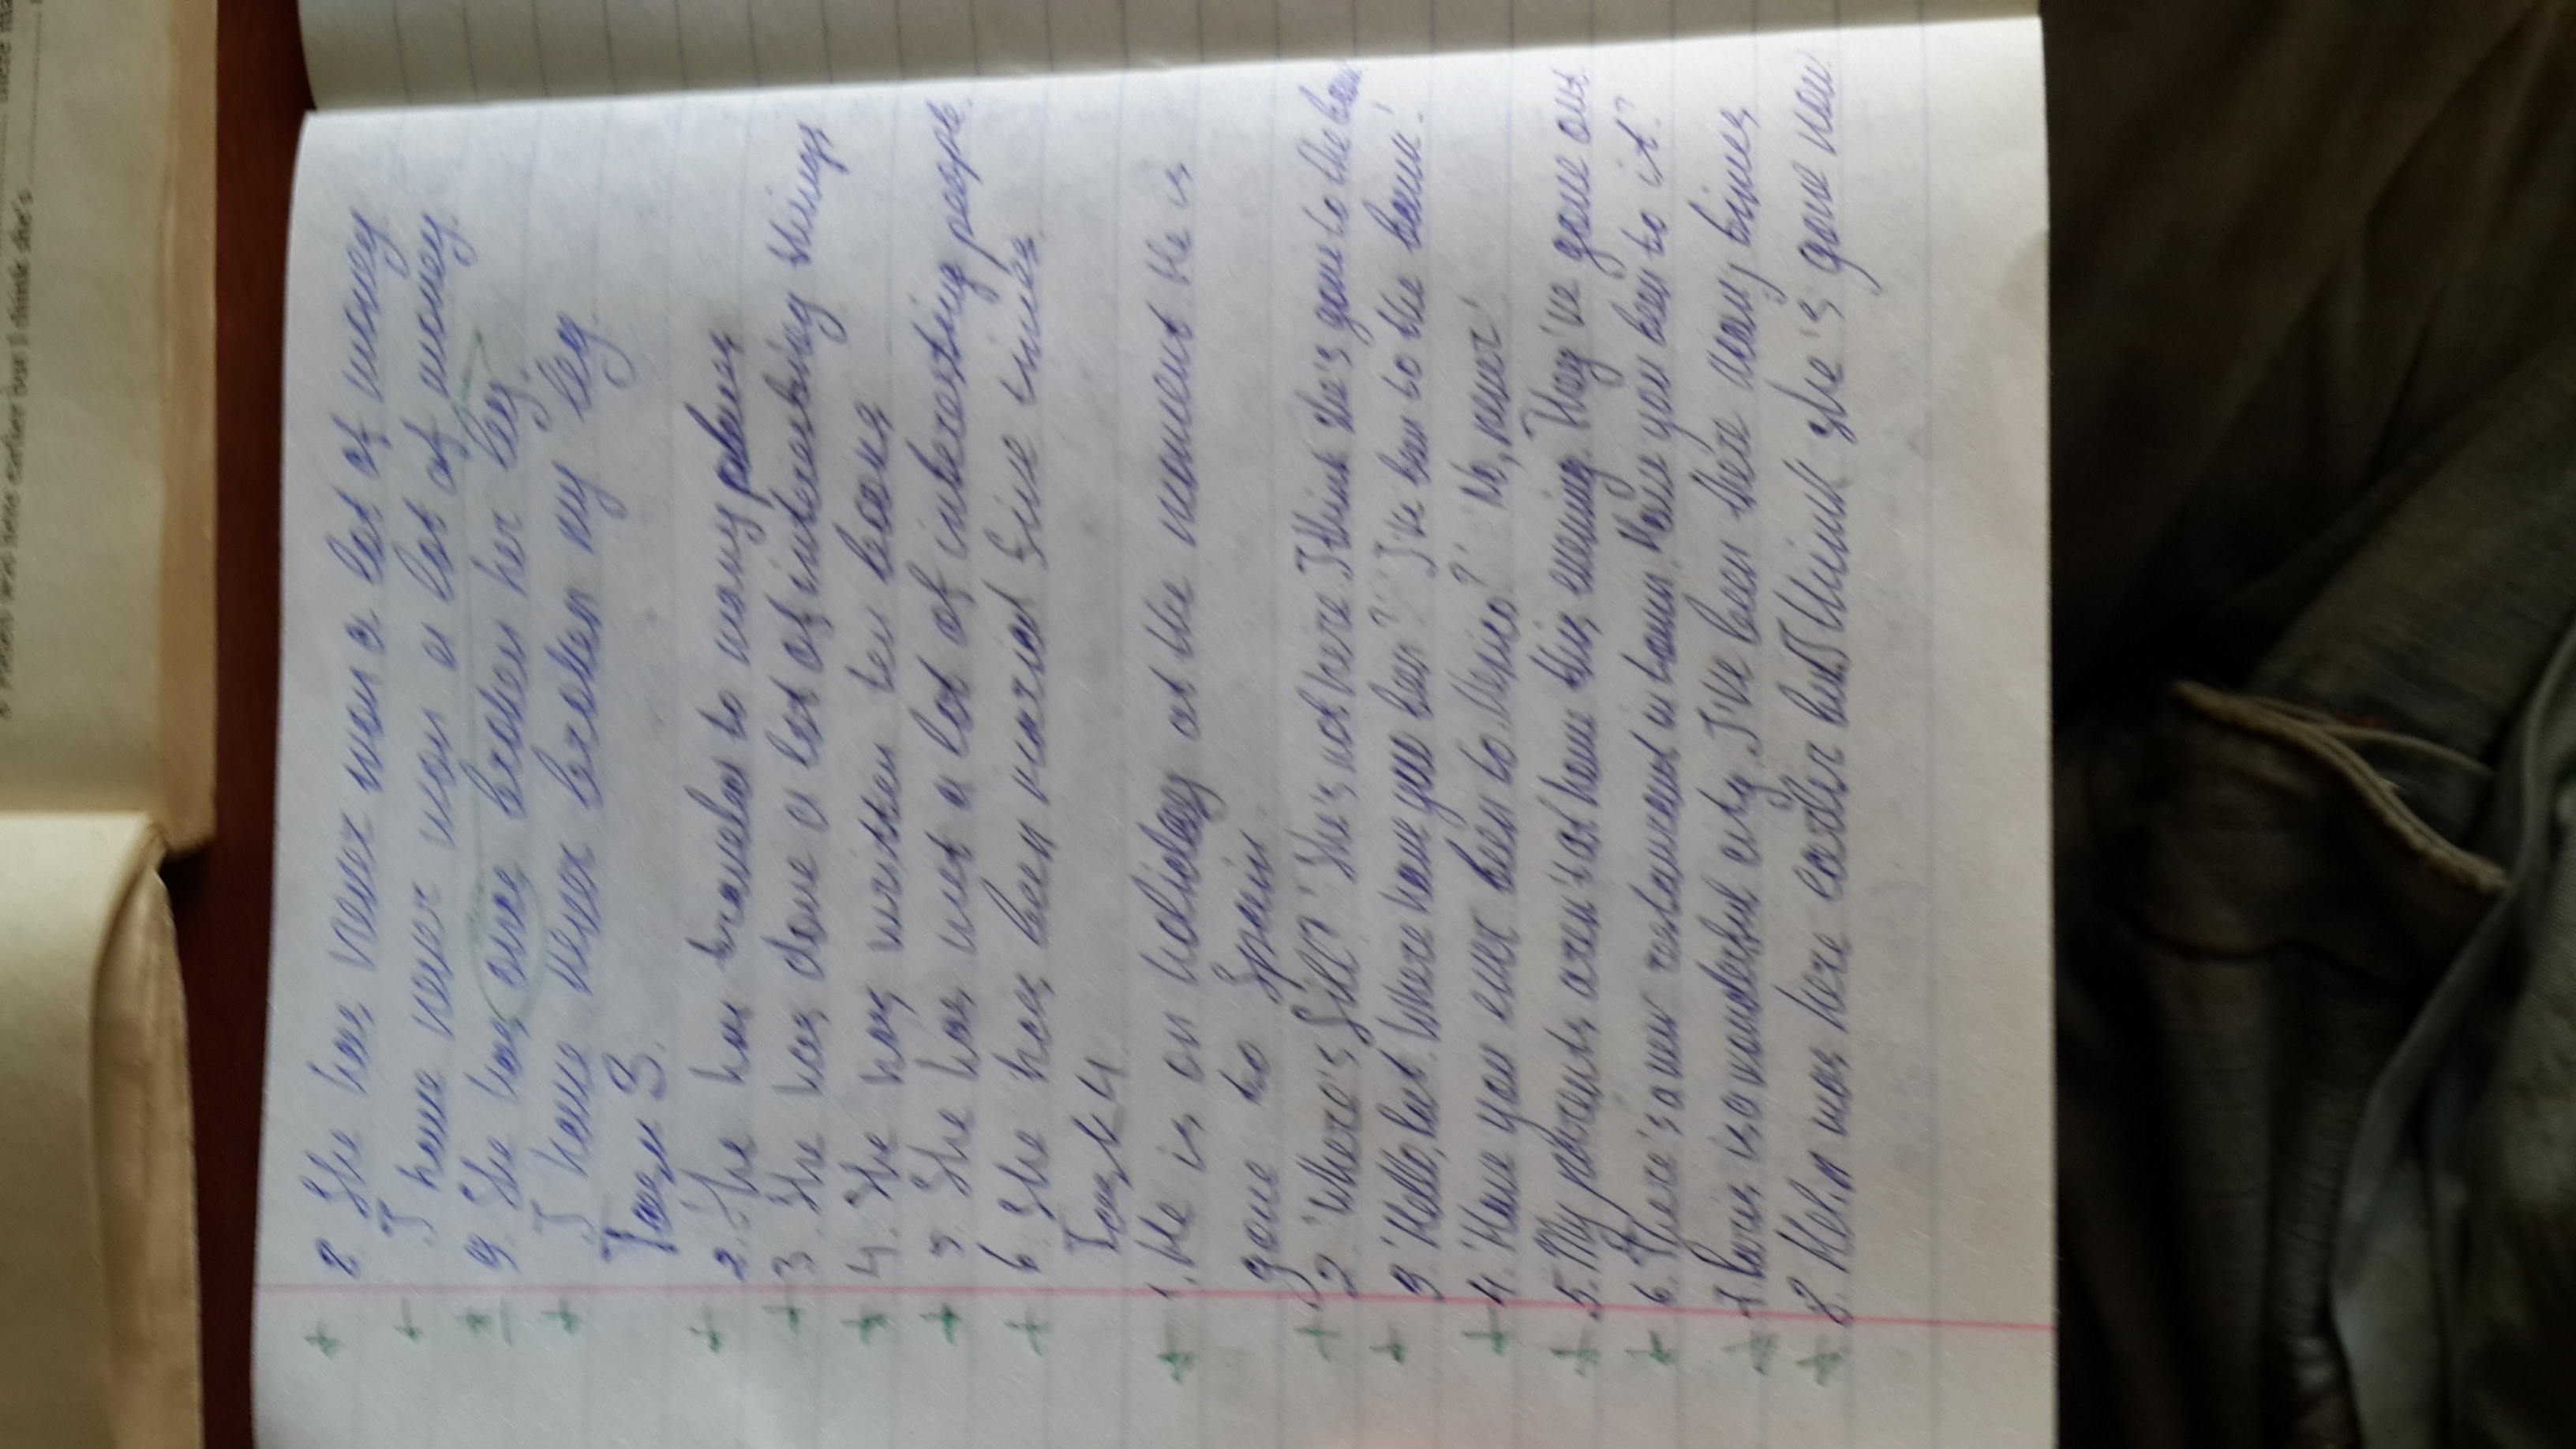 + 8 She has never won a lot of money
+ I have never won a lot of money
|+ 9. She has once broken her leg.
+ I have never broken my leg.
Task 3.
+ 2. She has traveled to many places
+ 3. She has done a lot of interesting things
+ 4. She has written ten books
+ 5 She has met a lot of interesting people.
+ 6 She has been married five times
Task 4.
+ 1. He is on holiday at the moment He is
gone to Spain
+ 2. 'Where's Jill?' 'She's not here I think she's gone to the bank
+ 3. 'Hello, Where have you been?' 'I've been to the bank.'
+ 4. 'Have you ever been to Mexico?' 'No, never.'
+ 5. My parents aren't at home this evening. They've gone out
+ 6. There's a new restaurant in town. Have you been to it?
+ 7. is a wonderful city. I've been there many times
+ 8. was here earlier but I think she's gone now
that I think she's